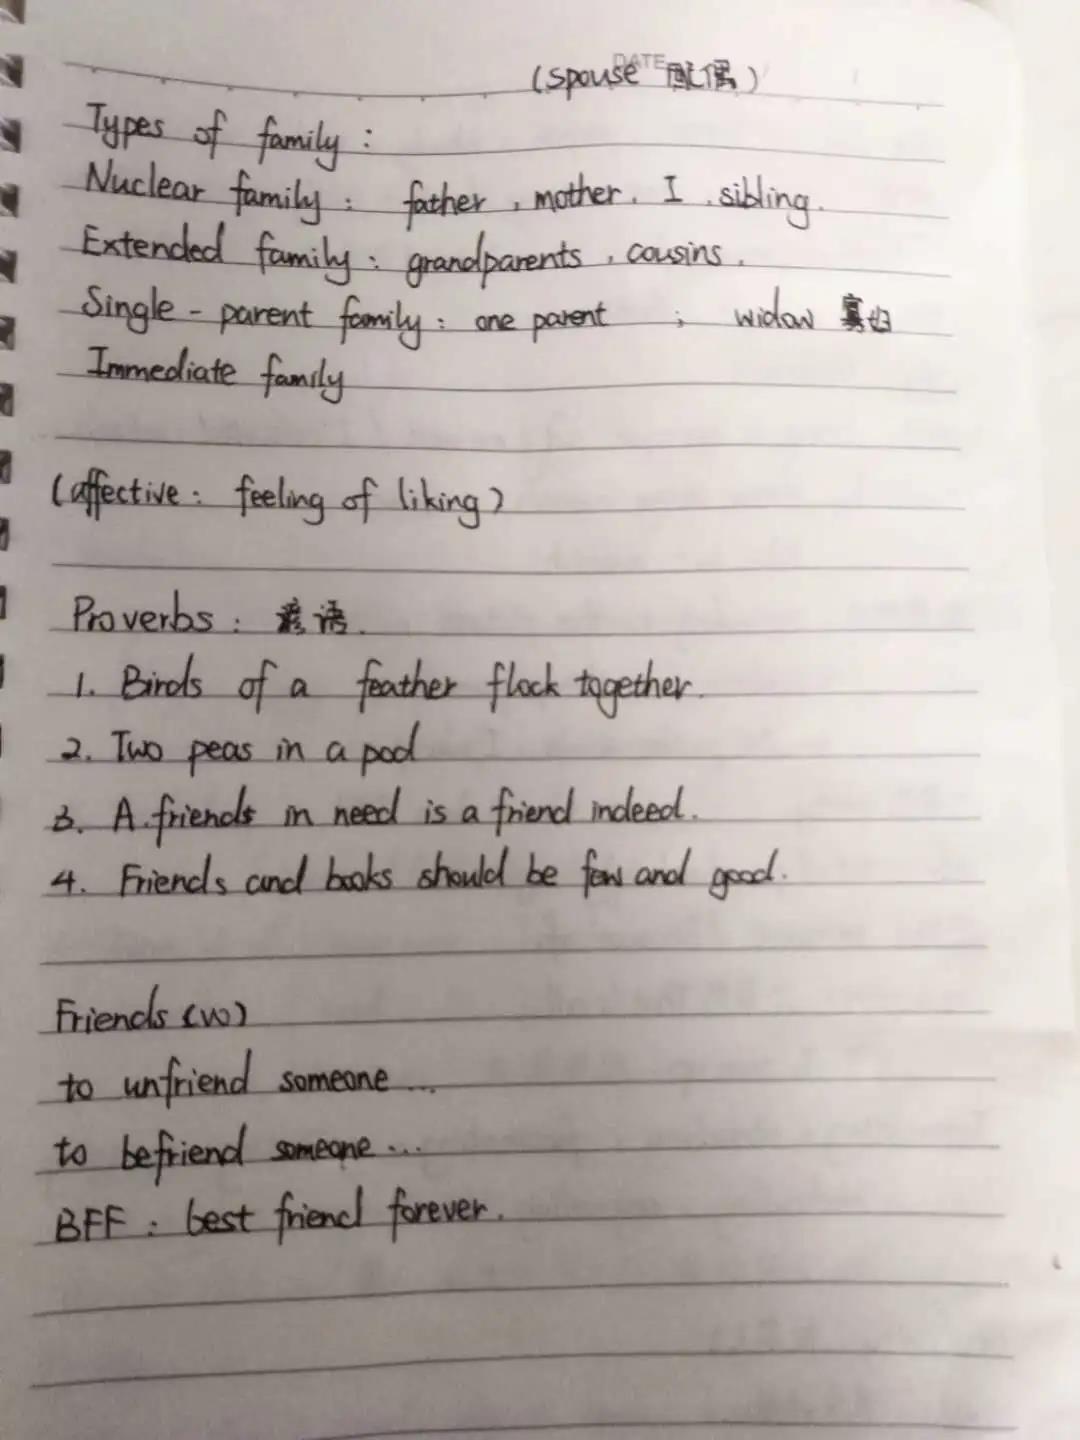 DATE
(spouse 配偶)
Types of family:
Nuclear family: father, mother, I, sibling.
Extended family: grandparents, cousins.
Single-parent family: one parent ; widow 寡妇
Immediate family
(affective: feeling of liking)
Proverbs: 谚语.
1. Birds of a feather flock together.
2. Two peas in a pod
3. A friends in need is a friend indeed.
4. Friends and books should be few and good.
Friends (W)
to unfriend someone ...
to befriend someone ...
BFF: best friend forever.